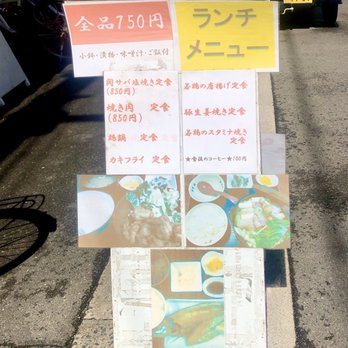 全品750円
小鉢・漬物・味噌汁・ご飯付
ランチ
メニュー
関サバ塩焼き定食
(850円)
焼き肉 定食
(850円)
鶏鍋 定食
カキフライ 定食
若鶏の唐揚げ定食
豚生姜焼き定食
若鶏のスタミナ焼き
定食
★食後のコーヒー★100円